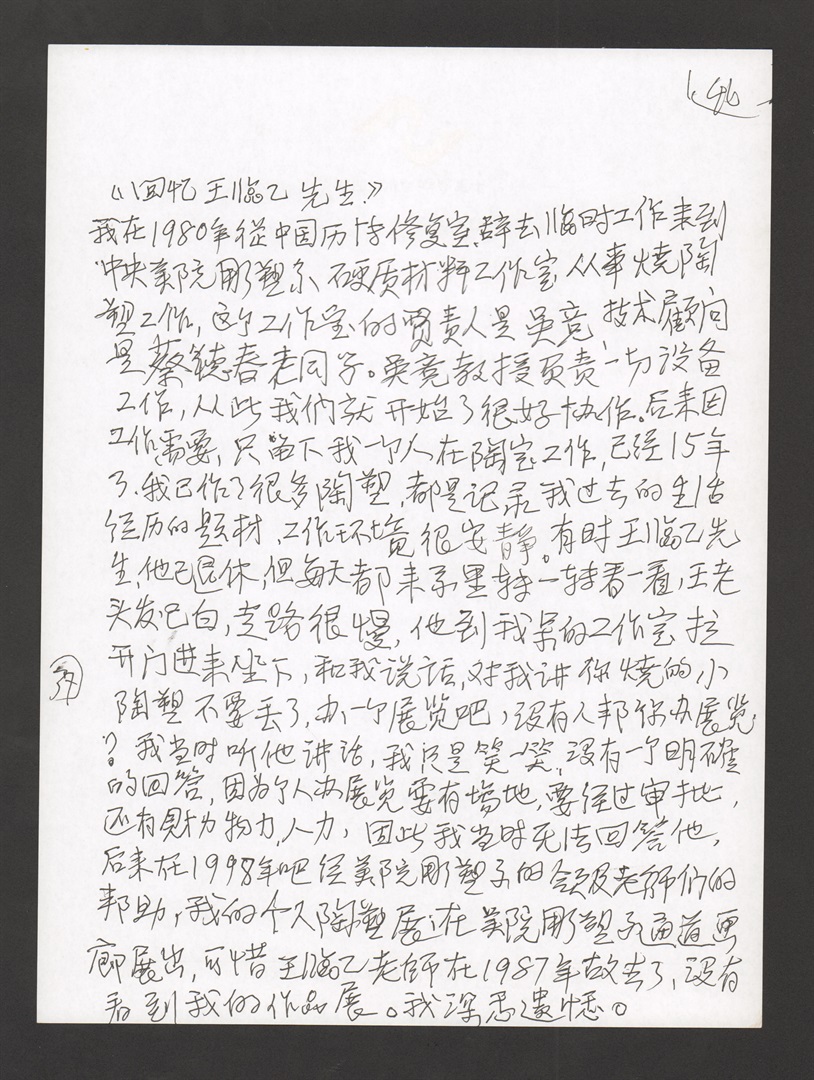 46
《回忆王临乙先生》
我在1980年從中国历博修复室辞去临时工作来到
中央美院雕塑系硬质材料工作室从事烧陶
塑工作,这个工作室的负责人是吴竞技术顾问
是蔡德春老同子。吴竞教授负责一切设备
工作,从此我们就开始了很好协作。后来因
工作需要,只留下我一个人在陶室工作,已经15年
了.我已作了很多陶塑,都是记录我过去的生活
经历的题材,工作环境很安静。有时王临乙先
生,他已退休,但每天都来系里转一转看一看,王老
头发已白,走路很慢,他到我呆的工作室拉
开门进来坐下,和我说话,对我讲你烧的小
陶塑不要丢了,办一个展览吧,没有人邦你办展览
?我当时听他讲话,我只是笑一笑,没有一个明确
的回答,因为个人办展览要有場地,要经过审批,
还有财力物力,人力,因此我当时无法回答他,
后来在1998年吧经美院雕塑系的领及老师们的
邦助,我的个人陶塑展在美院雕塑系通道画
廊展出,可惜王临乙老师在1987年故去了,没有
看到我的作品展。我深感遗憾。